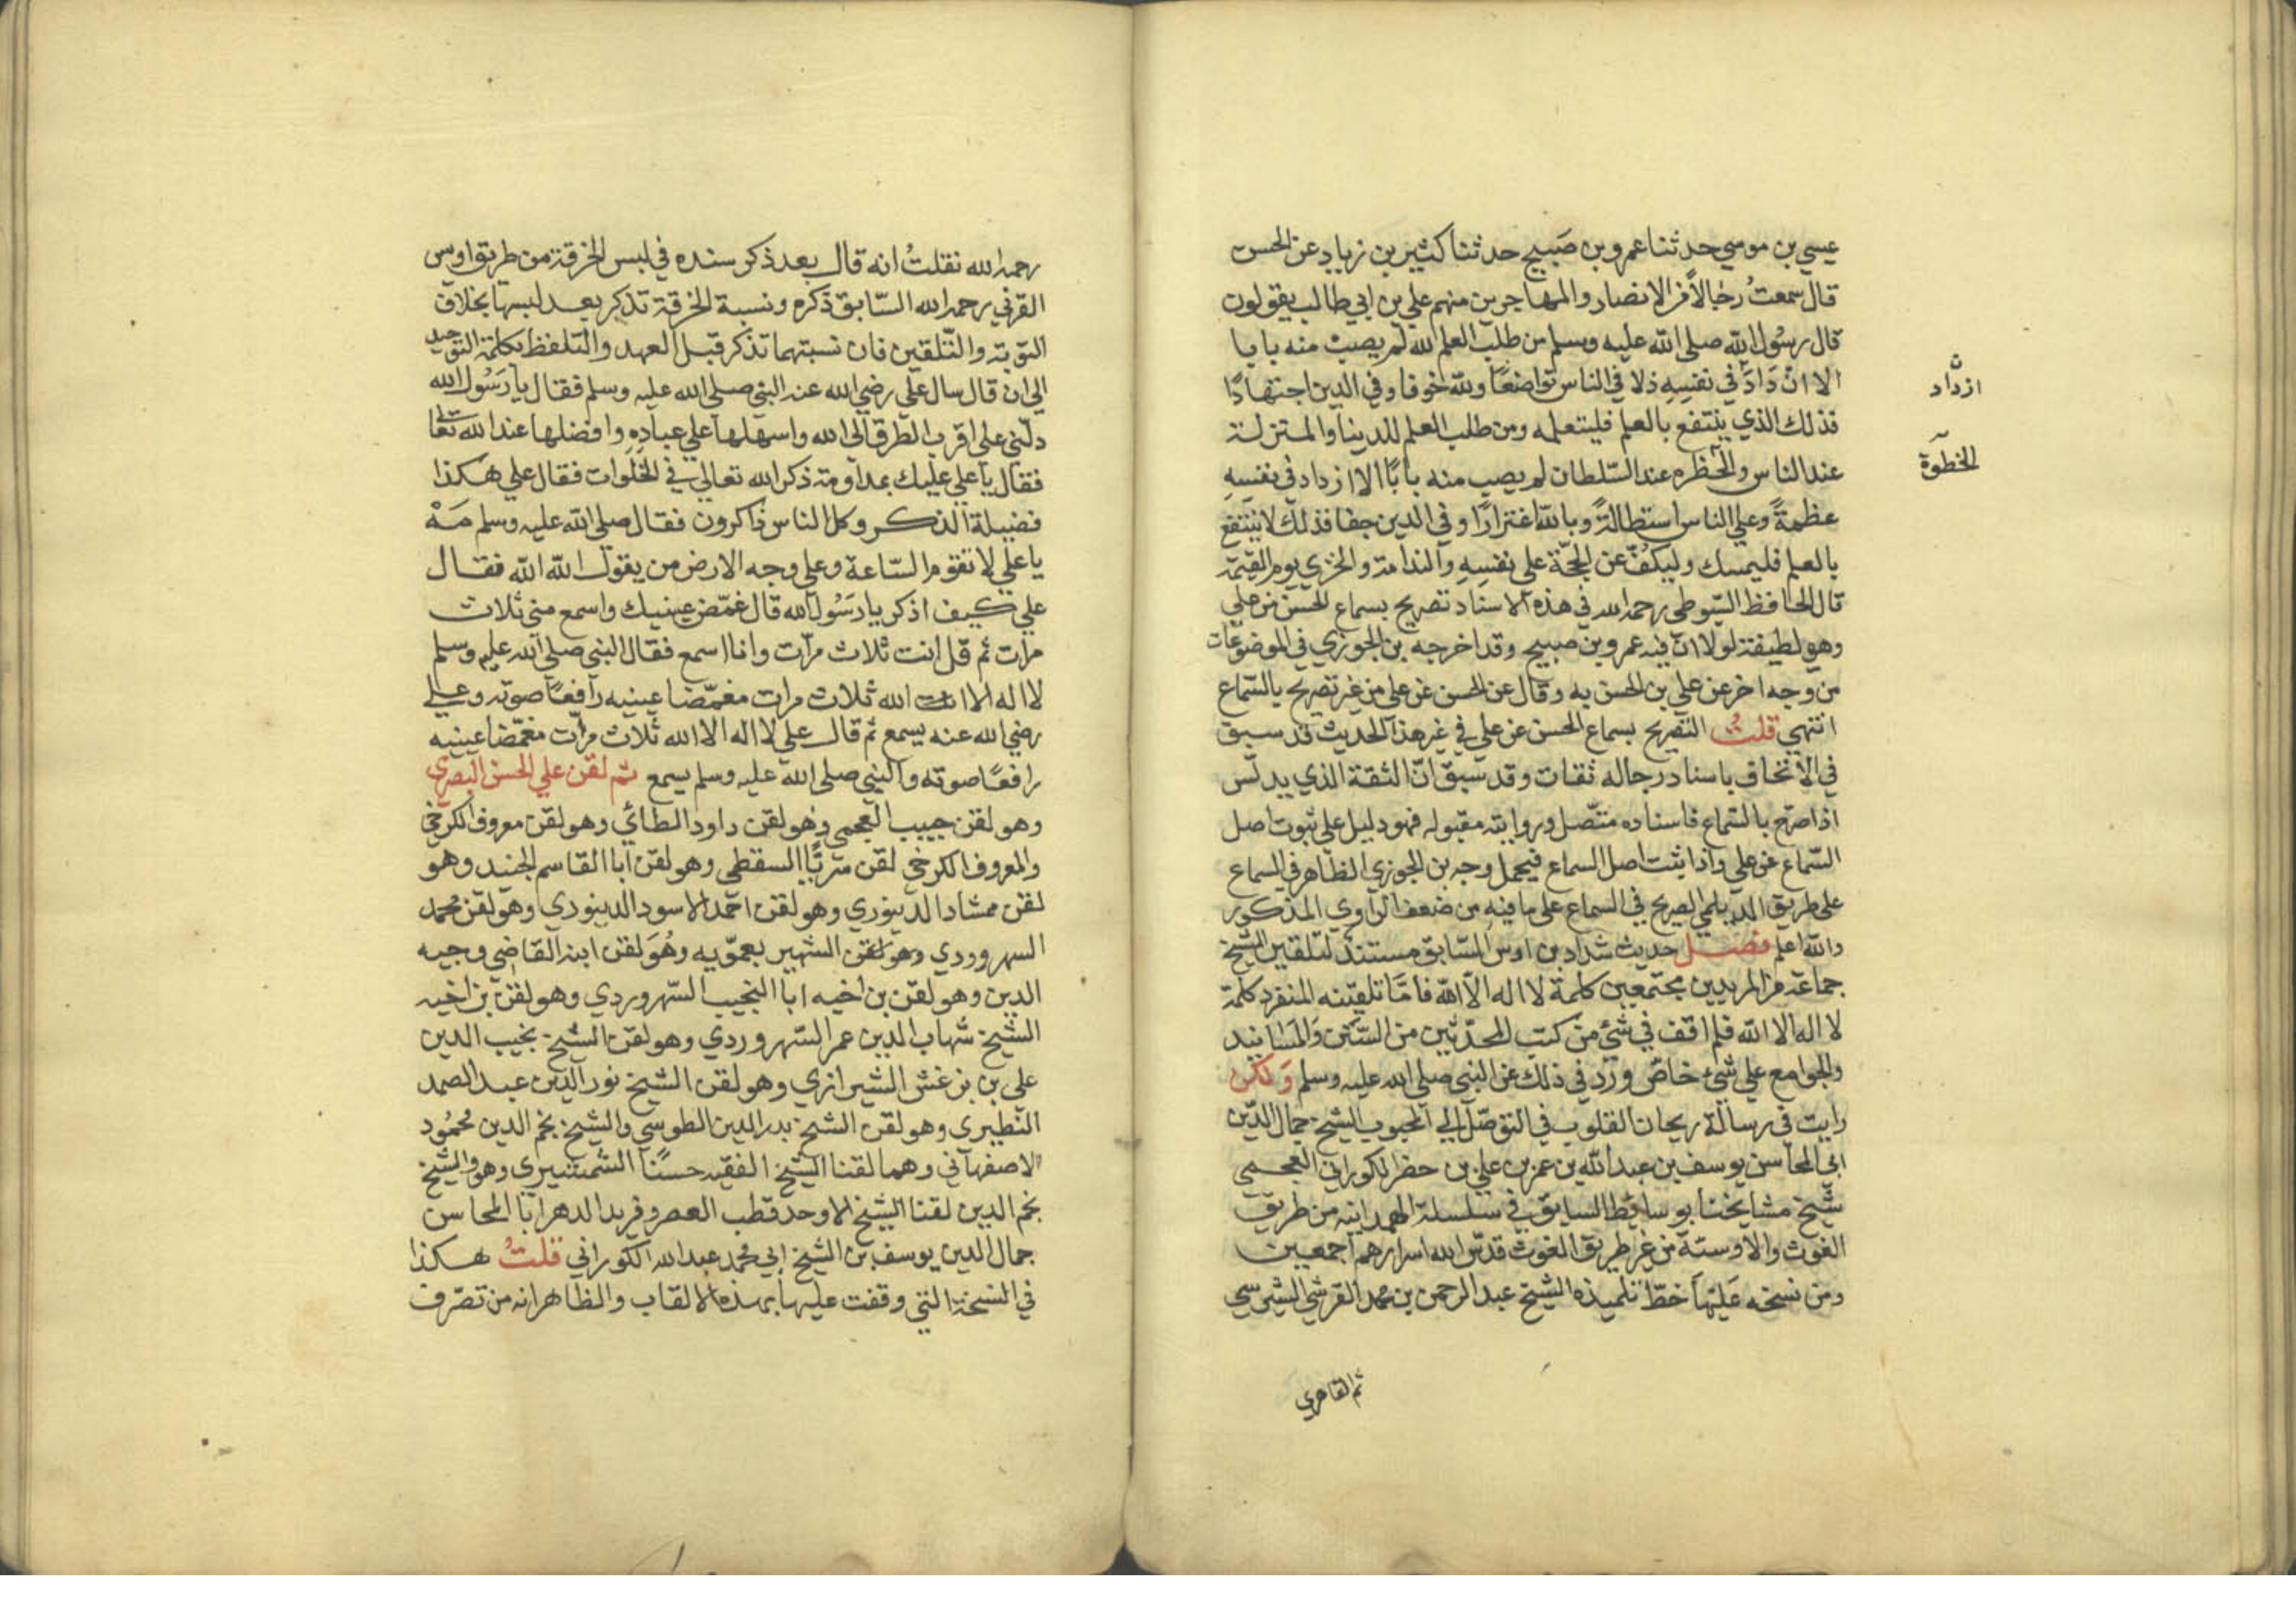 عيسي بن موسي حدثنا عمرو بن صَبيح حدثنا كثير بن زياد عن الحسن
قال سمعتُ رجالاً من الانصار والمهاجرين منهم علي بن ابي طالب يقولون
قال رسُول الله صلى الله عليه وسلم من طلب العلم لله لم يصب منه بابا
الا ان دَادَ في نفسِهِ ذلا في الناس تواضعًا ولله خوفا وفي الدين اجتهادًا
ازداد
فذلك الذي ينتفع بالعلم فليتعلمه ومن طلب العلم للدينا والمنزلة
عند الناس والحظره عند السّلطان لم يصب منه بابًا الا ازداد في نفسِهِ
الخطوة
عظمةً وعلى الناس استطالةً وبالله اغترارًا وفي الدين جفا فذلك لا ينتفع
بالعلم فليمسك وليكفّ عن الحجّة علي نفسِهِ والندامة والخزي يوم القيٰمة
قال الحافظ السّيوطي رحمه الله في هذه الاسناد تصريح بسماع الحسن من علي
وهو لطيفة لولا انّ فيه عمرو بن صبيح وقد اخرجه بن الجوزي في الموضوعات
من وجه اخر عن علي بن الحسن به وقال عن الحسن عن علي من غير تصريح بالسّماع
انتهي قلتُ التصريح بسماع الحسن عن علي في غير هذا الحديث قد سبق
في الاتحاف باسناد رجاله ثقات وقد سبق انّ الثقة الذي يدلّس
اذا صرّح بالسّماع فاسناده متّصل وروايته مقبوله فهو دليل علي ثبوت اصل
السّماع عن علي واذا ثبت اصل السماع فيحمل وجه بن الجوزي الظاهر في السماع
على طريق الديلمي الصريح في السماع على ما فيه من ضعف الراوي المذكور
والله اعلم فصــل حديث شداد بن اوس السّابق مستند لتلقين الشيخ
جماعة من المريدين مجتمعين كلمة لا اله الاّ الله فامّا تلقينه المنفرد كلمة
لا اله الا الله فلم اقف في شئ من كتب المحدّثين من السّنن والمَسَانيد
والجوامع علي شيء خاصّ وَرَد في ذلك عن النبي صلى الله عليه وسلم وَلكن
رايت في رسالة ريحان القلوب في التوصّل الي المحبوب للشيخ جمال الدّين
ابي المحاسن يوسف بن عبد الله بن عمر بن علي بن خضر الكوراني العجمي
شيخ مشايخنا بوسائط السابق في سلسلة الهمدانيه من طريق
الغوث والاوسيّة من غير طريق الغوث قدّس الله اسرارهم اجمعين
ومن نسخه عَليْهَا خطّ تلميذه الشيخ عبد الرحمن بن محمد القرشي الشبريسي
ثم القاهري
رحمه الله نقلتُ انه قال بعد ذكر سنده في لبس الخرقة من طريق اويس
القرني رحمه الله السّابق ذكره ونسبة الخرقة تذكر بعد لبسها بخلاف
التوبة والتّلقين فان نسبتهما تذكر قبل العهد والتلفظ بكلمة التوحيد
الي ان قال سال علي رضي الله عنه النبي صلى الله عليه وسلم فقال يا رَسُول الله
دلّني على اقرب الطرق الى الله واسهلها علي عباده وافضلها عند الله تعالى
فقال يا علي عليك بمداومة ذكر الله تعالي في الخلوات فقال علي هكذا
فضيلة الذكر وكل الناس ذاكرون فقال صلى الله عليه وسلم مَهْ
يا علي لا تقوم السّاعة وعلي وجه الارض من يقول الله الله فقال
علي كيف اذكر يا رسُول الله قال غمّض عينيك واسمع مني ثلاث
مرات ثم قل انت ثلاث مرّات وانا اسمع فقال النبي صلى الله عليه وسلم
لا اله الا الله ثلاث مرات مغمّضا عينيه رافعًا صوته وعلي
رضي الله عنه يسمع ثم قال علي لا اله الا الله ثلاث مرّات مغمّضا عينيه
رافعًا صوته والنبي صلى الله عليه وسلم يسمع ثم لقن علي الحسن البصري
وهو لقن حبيب العجمي وهو لقن داود الطائي وهو لقن معروف الكرخي
والمعروف الكرخي لقن سريًّا السقطي وهو لقن ابا القاسم الجنيد وهو
لقن ممشاد الدينوري وهو لقن احمد الاسود الدينوري وهو لقن محمد
السهروردي وهو لقن الشهير بعمّويه وهُوَ لقن ابنه القاضي وجيه
الدين وهو لقن بن اخيه ابا النجيب السّهروردي وهو لقن بن اخيه
الشيخ شهاب الدين عمر السّهروردي وهو لقن الشيخ نجيب الدين
علي بن بزغش الشيرازي وهو لقن الشيخ نور الدين عبد الصمد
النطيري وهو لقن الشيخ بدر الدين الطوسي والشيخ نجم الدين محمُود
الاصفهاني وهما لقنا الشيخ الفقيه حسنًا الشمشيري وهو والشيخ
نجم الدين لقنا الشيخ الاوحد قطب العصر وفريد الدهر ابا المحاسن
جمال الدين يوسف بن الشيخ ابي محمد عبد الله الكوراني قلتُ هكذا
في النسخة التي وقفت عليها بهذه الالقاب والظاهر انه من تصرّف